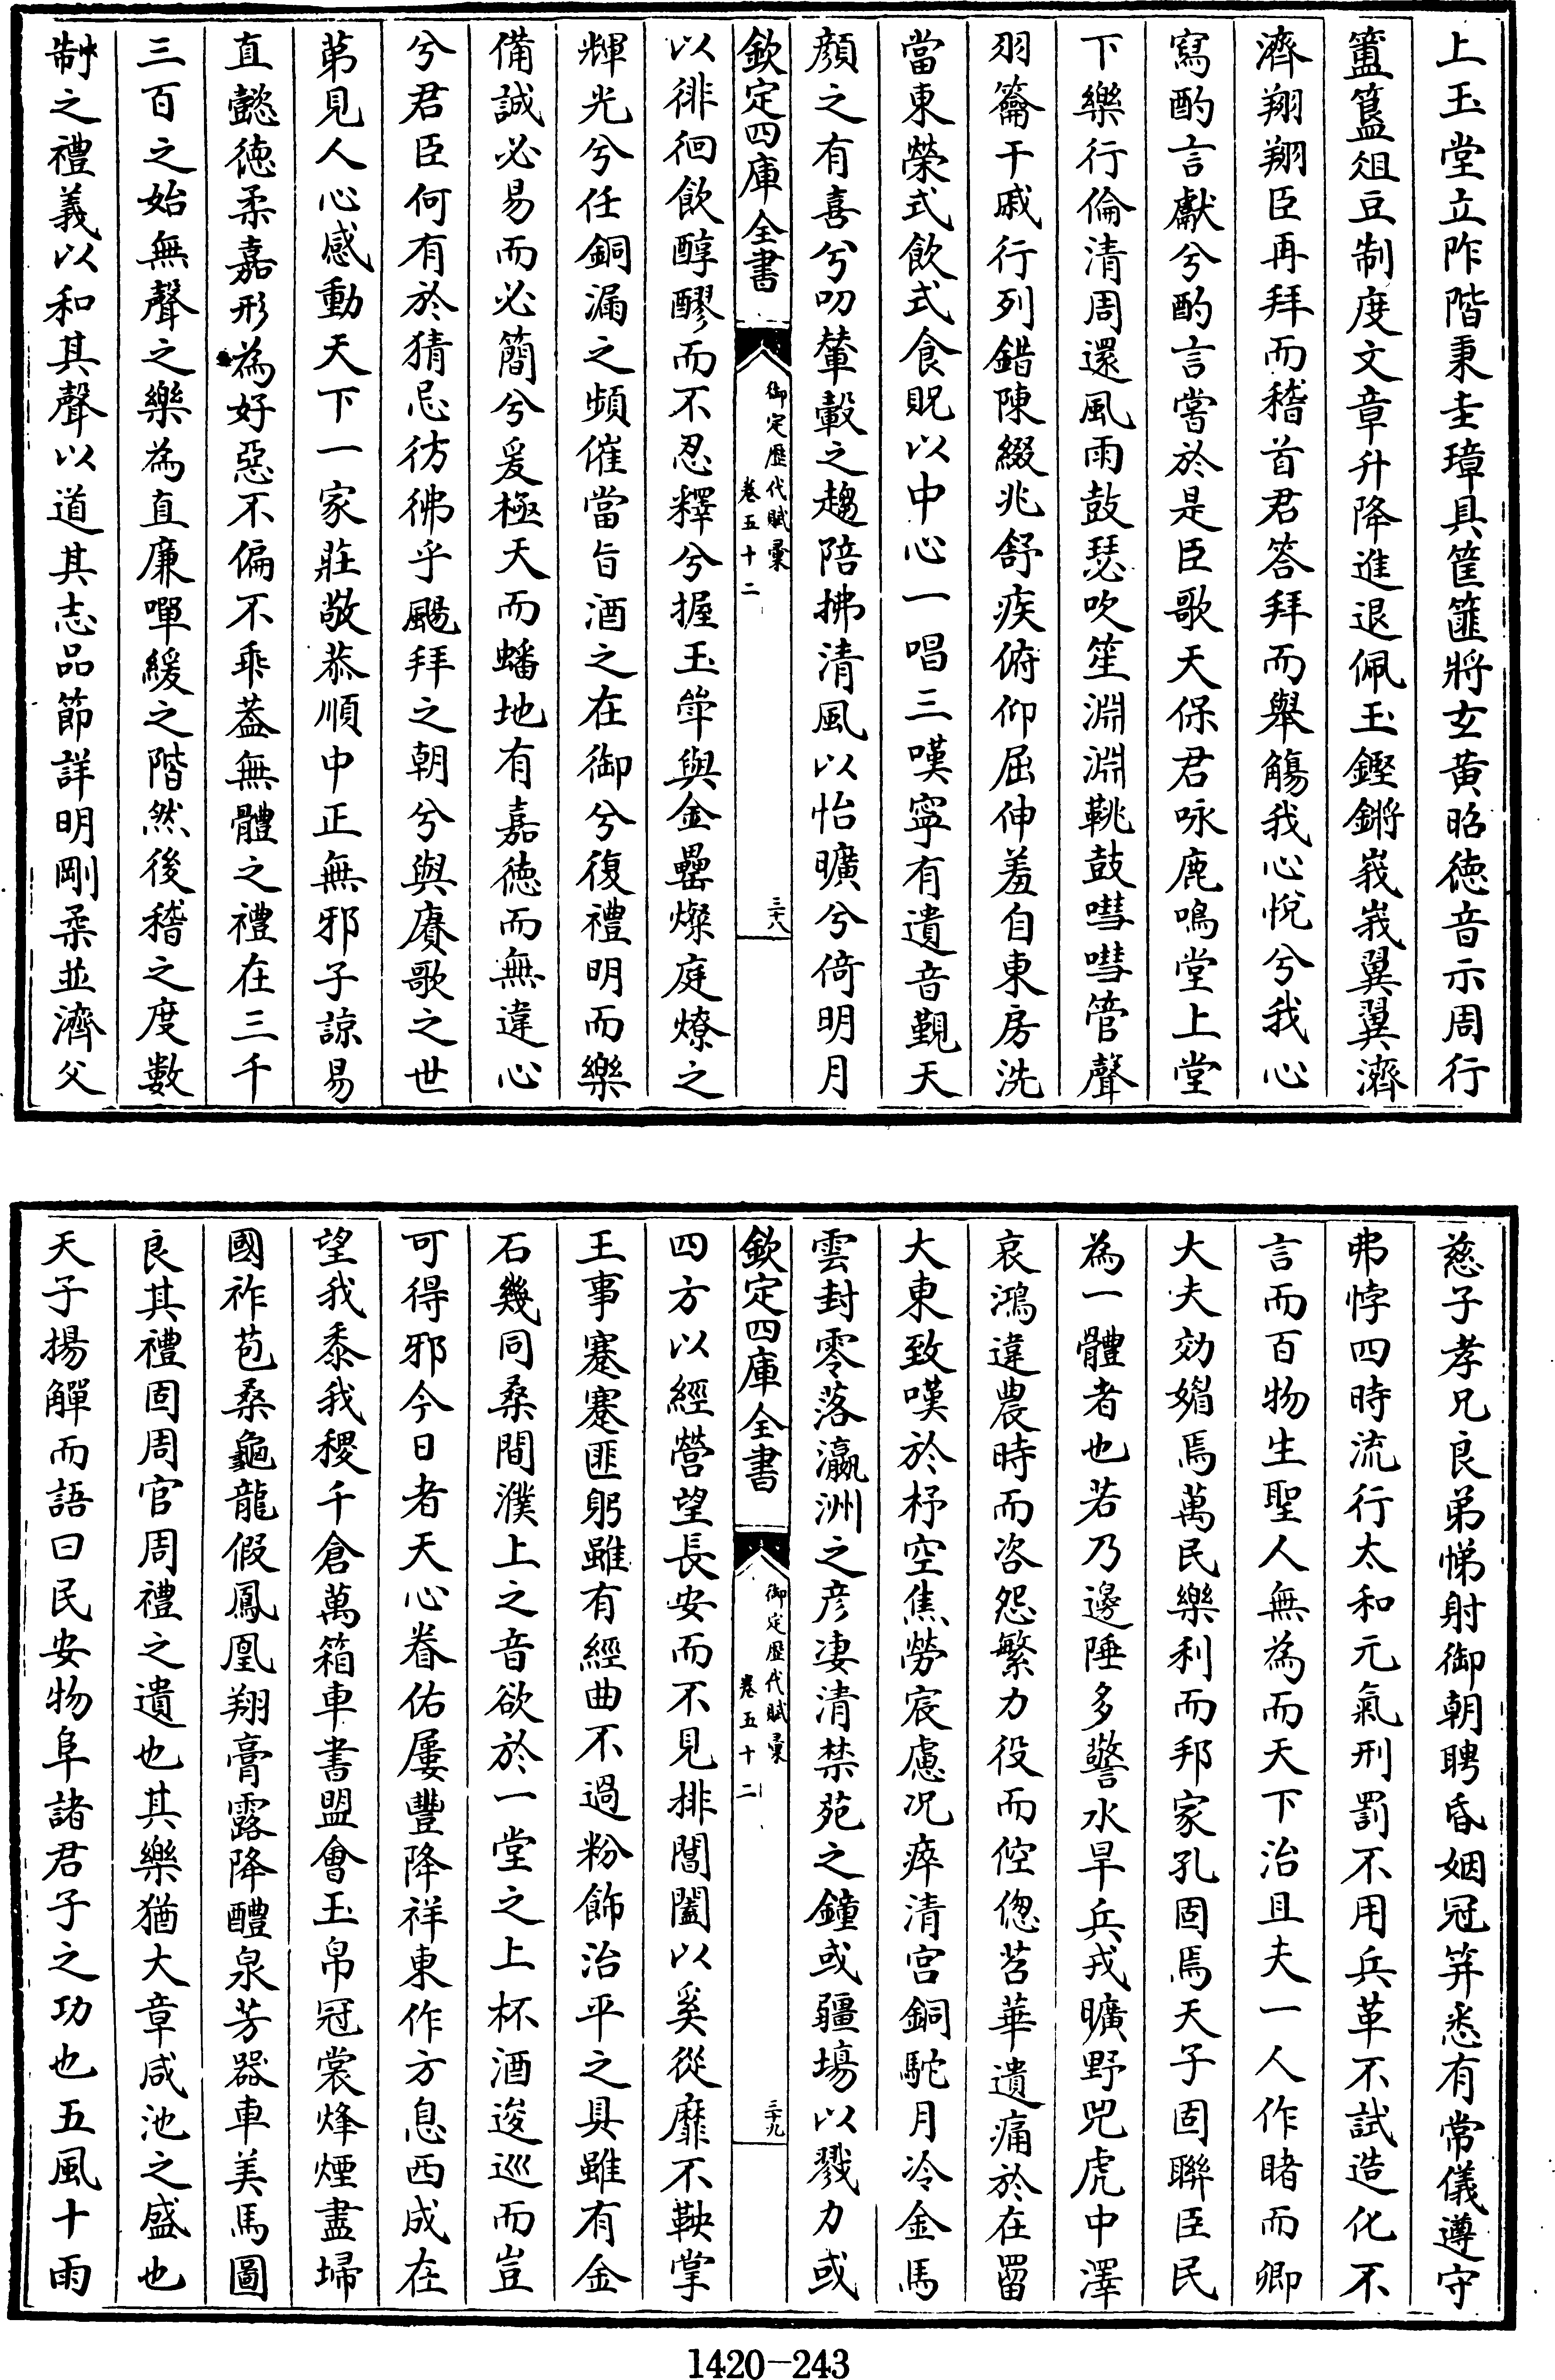 上玉堂立阼階秉圭璋具筐篚將玄黄昭徳音示周行
簠簋俎豆制度文章升降進退佩玉鏗鏘峩峩翼翼濟
濟翔翔臣再拜而稽首君答拜而舉觴我心悅兮我心
寫酌言獻兮酌言嘗於是臣歌天保君咏鹿鳴堂上堂
下樂行倫清周還風雨鼓瑟吹笙淵淵鞉鼓嘒嘒管聲
羽籥干戚行列錯陳綴兆舒疾俯仰屈伸羞自東房洗
當東榮式飲式食貺以中心一唱三嘆寧有遺音覲天
顔之有喜兮叨輦轂之趨陪拂清風以怡曠兮倚明月
欽定四庫全書
御定歴代賦彚
卷五十二
三十八
以徘徊飲醇醪而不忍釋兮握玉斝與金罍燦庭燎之
輝光兮任銅漏之頻催當旨酒之在御兮復禮明而樂
備誠必易而必簡兮爰極天而蟠地有嘉徳而無違心
兮君臣何有於猜忌彷彿乎颺拜之朝兮與賡歌之世
苐見人心感動天下一家莊敬恭順中正無邪子諒易
直懿徳柔嘉形為好惡不偏不乖葢無體之禮在三千
三百之始無聲之樂為直廉嘽緩之階然後稽之度數
制之禮義以和其聲以道其志品節詳明剛柔並濟父
慈子孝兄良弟悌射御朝聘昏姻冠笄悉有常儀遵守
弗悖四時流行太和元氣刑罰不用兵革不試造化不
言而百物生聖人無為而天下治且夫一人作睹而卿
大夫効媚焉萬民樂利而邦家孔固焉天子固聯臣民
為一體者也若乃邊陲多警水旱兵戎曠野兕虎中澤
哀鴻違農時而咨怨繁力役而倥偬苕華遺痛於在罶
大東致嘆於杼空焦勞宸慮况瘁清宫銅駝月冷金馬
雲封零落瀛洲之彦凄清禁苑之鐘或疆埸以戮力或
欽定四庫全書
御定歴代賦彚
卷五十二
三十九
四方以經營望長安而不見排閶闔以奚從靡不鞅掌
王事蹇蹇匪躬雖有經曲不過粉飾治平之具雖有金
石幾同桑間濮上之音欲於一堂之上杯酒逡巡而豈
可得邪今日者天心眷佑屢豐降祥東作方息西成在
望我黍我稷千倉萬箱車書盟會玉帛冠裳烽煙盡埽
國祚苞桑龜龍假鳳凰翔膏露降醴泉芳器車美馬圖
良其禮固周官周禮之遺也其樂猶大章咸池之盛也
天子揚觶而語曰民安物阜諸君子之功也五風十雨
1420-243